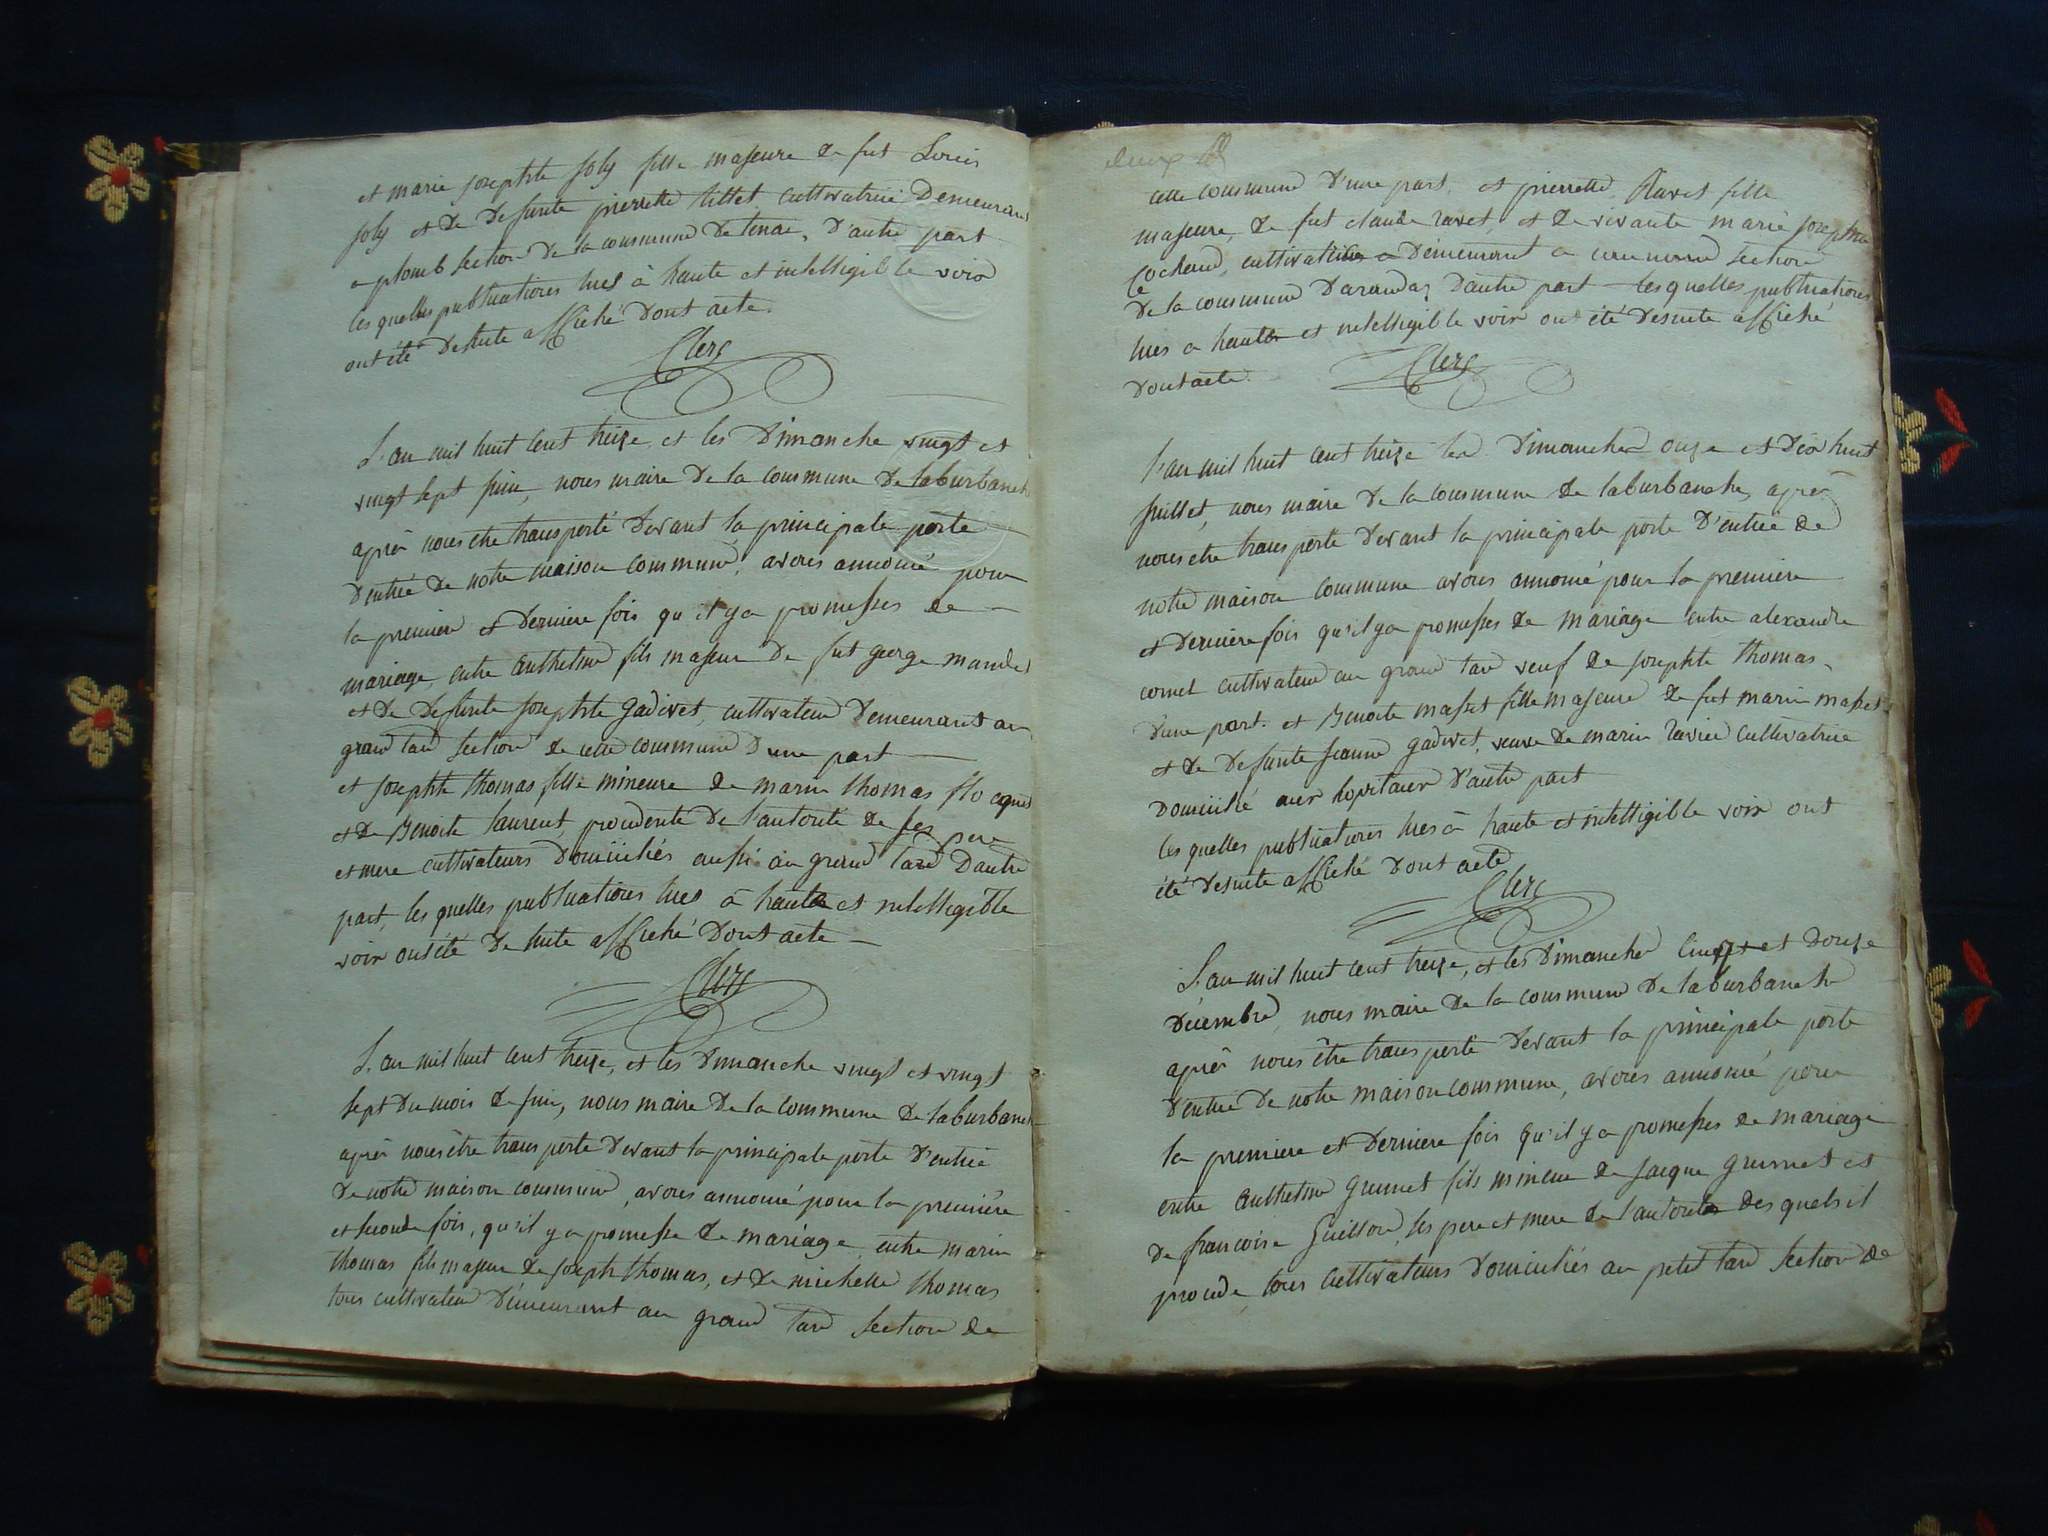 et marie josephte joly fille majeure de fut Louis
joly et de defunte pierrette tittet, cultivatrice Demeurant
a plomb section de la commune de tenai, D'autre part
les quelles publications lues à haute et intelligible voix
ont été Desuite affiché Dont acte.
Clerc
L'an mil huit cent treize, et les Dimanche vingt et
vingt sept juin, nous maire de la commune de laburbanche
après nous etre transporté devant la principale porte
D'entrée de notre maison commune, avons annoncé pour
la premiere et Derniere fois qu'il y a promesses de
mariage, entre anthelme fils majeur de fut george
et de Defunte josephte gadivet, cultivateur Demeurant au
grand tard section de cette commune D'une part
et josephte thomas fille mineure de marin thomas
et de Benoite laurent, procedente de l'autorité de ses pere
et mere cultivateurs Domiciliés aussi au grand tard D'autre
part, les quelles publications lues à haute et intelligible
voix ont été De suite affiché Dont acte
Clerc
L'an mil huit cent treize, et les Dimanche vingt et vingt
sept du mois de juin, nous maire de la commune de laburbanche
après nous être transporté Devant la principale porte D'entrée
de notre maison commune, avons annoncé pour la premiere
et seconde fois, qu'il y a promesse de mariage, entre marin
thomas fils majeur de joseph thomas, et de michelle thomas
tous cultivateur Demeurant au grand tard section de
deux
cette commune D'une part, et pierrette Ravet fille
majeure, de fut claude ravet, et de vivante marie josephte
cochand, cultivatrice Demeurant a section
De la commune D'arandaz D'autre part les quelles publications
lues a haute et intelligible voix ont été Desuite affiché
Dont acte.
Clerc
l'an mil huit cent treize les Dimanches onze et Dix huit
juillet, nous maire de la commune de laburbanche, après
nous etre transporté Devant la principale porte D'entrée de
notre maison commune avons annoncé pour la premiere
et derniere fois qu'il y a promesses de mariage entre alexandre
cornet cultivateur au grand tard veuf de josephte thomas
D'une part. et Benoite masset fille majeure de fut marin masset
et de Defunte jeanne gadivet, veuve de marin ravier cultivatrice
Domicilié aux hopitaux D'autre part
les quelles publications lues à haute et intelligible voix ont
été Desuite affiché Dont acte
Clerc
L'an mil huit cent treize, et les Dimanches cinq et douze
Decembre, nous maire de la commune de laburbanche
après nous être transporté Devant la principale porte
D'entrée de notre maison commune, avons annoncé pour
la premiere et Derniere fois qu'il y a promesses de mariage
entre anthelme grumet fils mineur de jacque grumet et
de francoise Guillon, ses pere et mere de l'autorité des quels il
procede, tous cultivateurs Domiciliés au petit tard section de